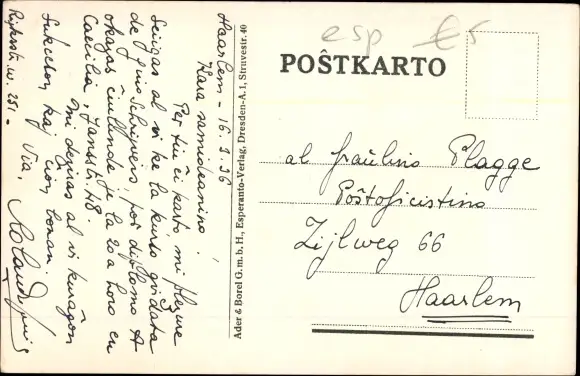 Haarlem - 16.3.36
Kara samideanino!
Per tiu ĉi karto mi plezure
sciigas al vi ke la kurso gvidata
de f-ino Schrijvers, por diplomo A
okazas ĉiulunde je la 20a horo en
Caecilia, Jansstr. 48.
Mi deziras al vi kuraĝon
sukceson kaj ĉion bonan.
Via,
Rijksstr.w. 251 -
Ader & Borel G.m.b.H., Esperanto-Verlag, Dresden-A. 1, Struvestr. 40
esp €5
POŜTKARTO
al fraŭlino Plagge
Poŝtoficistino
Zijlweg 66
Haarlem